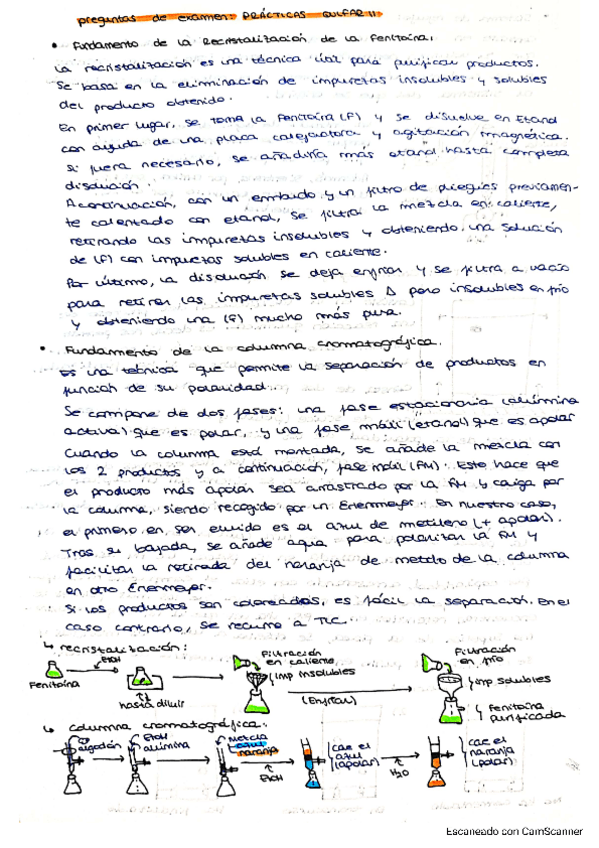 preguntas de examen: PRÁCTICAS QUIFAR II
• Fundamento de la Recristalización de la Fenitoína.
La recristalización es una técnica útil para purificar productos.
Se basa en la eliminación de impurezas insolubles y solubles
del producto obtenido.
En primer lugar, se toma la Fenitoína (F) y se disuelve en Etanol
con ayuda de una placa calefactora y agitación magnética.
Si fuera necesario, se añadiría más etanol hasta completa
disolución.
A continuación, con un embudo y un filtro de pliegues previamen-
te calentado con etanol, se filtra la mezcla en caliente,
retirando las impurezas insolubles y obteniendo una solución
de (F) con impurezas solubles en caliente.
Por último, la disolución se deja enfriar y se filtra a vacío
para retirar las impurezas solubles Δ pero insolubles en frío
y obteniendo una (F) mucho más pura.
• Fundamento de la columna cromatográfica.
Es una técnica que permite la separación de productos en
función de su polaridad.
Se compone de dos fases: una fase estacionaria (alúmina
activa) que es polar, y una fase móvil (etanol) que es apolar
Cuando la columna está montada, se añade la mezcla con
los 2 productos y a continuación, fase móvil (FM). Esto hace que
el producto más apolar sea arrastrado por la FM y caiga por
la columna, siendo recogido por un Erlenmeyer. En nuestro caso,
el primero en ser eluido es el azul de metileno (+ apolar).
Tras su bajada, se añade agua para polarizar la FM y
facilitar la retirada del naranja de metilo de la columna
en otro Erlenmeyer.
Si los productos son coloreados, es fácil la separación. En el
caso contrario, se recurre a TLC.
↳ recristalización:
Fenitoína
EtOH
hasta diluir
Filtración
en caliente
imp insolubles
(Enfriar)
Filtración
en frío
imp solubles
Fenitoína
purificada
↳ Columna cromatográfica:
algodón
EtOH
alúmina
Mezcla
azul
naranja
EtOH
cae el
azul
(apolar)
H2O
cae el
naranja
(polar)
Escaneado con CamScanner